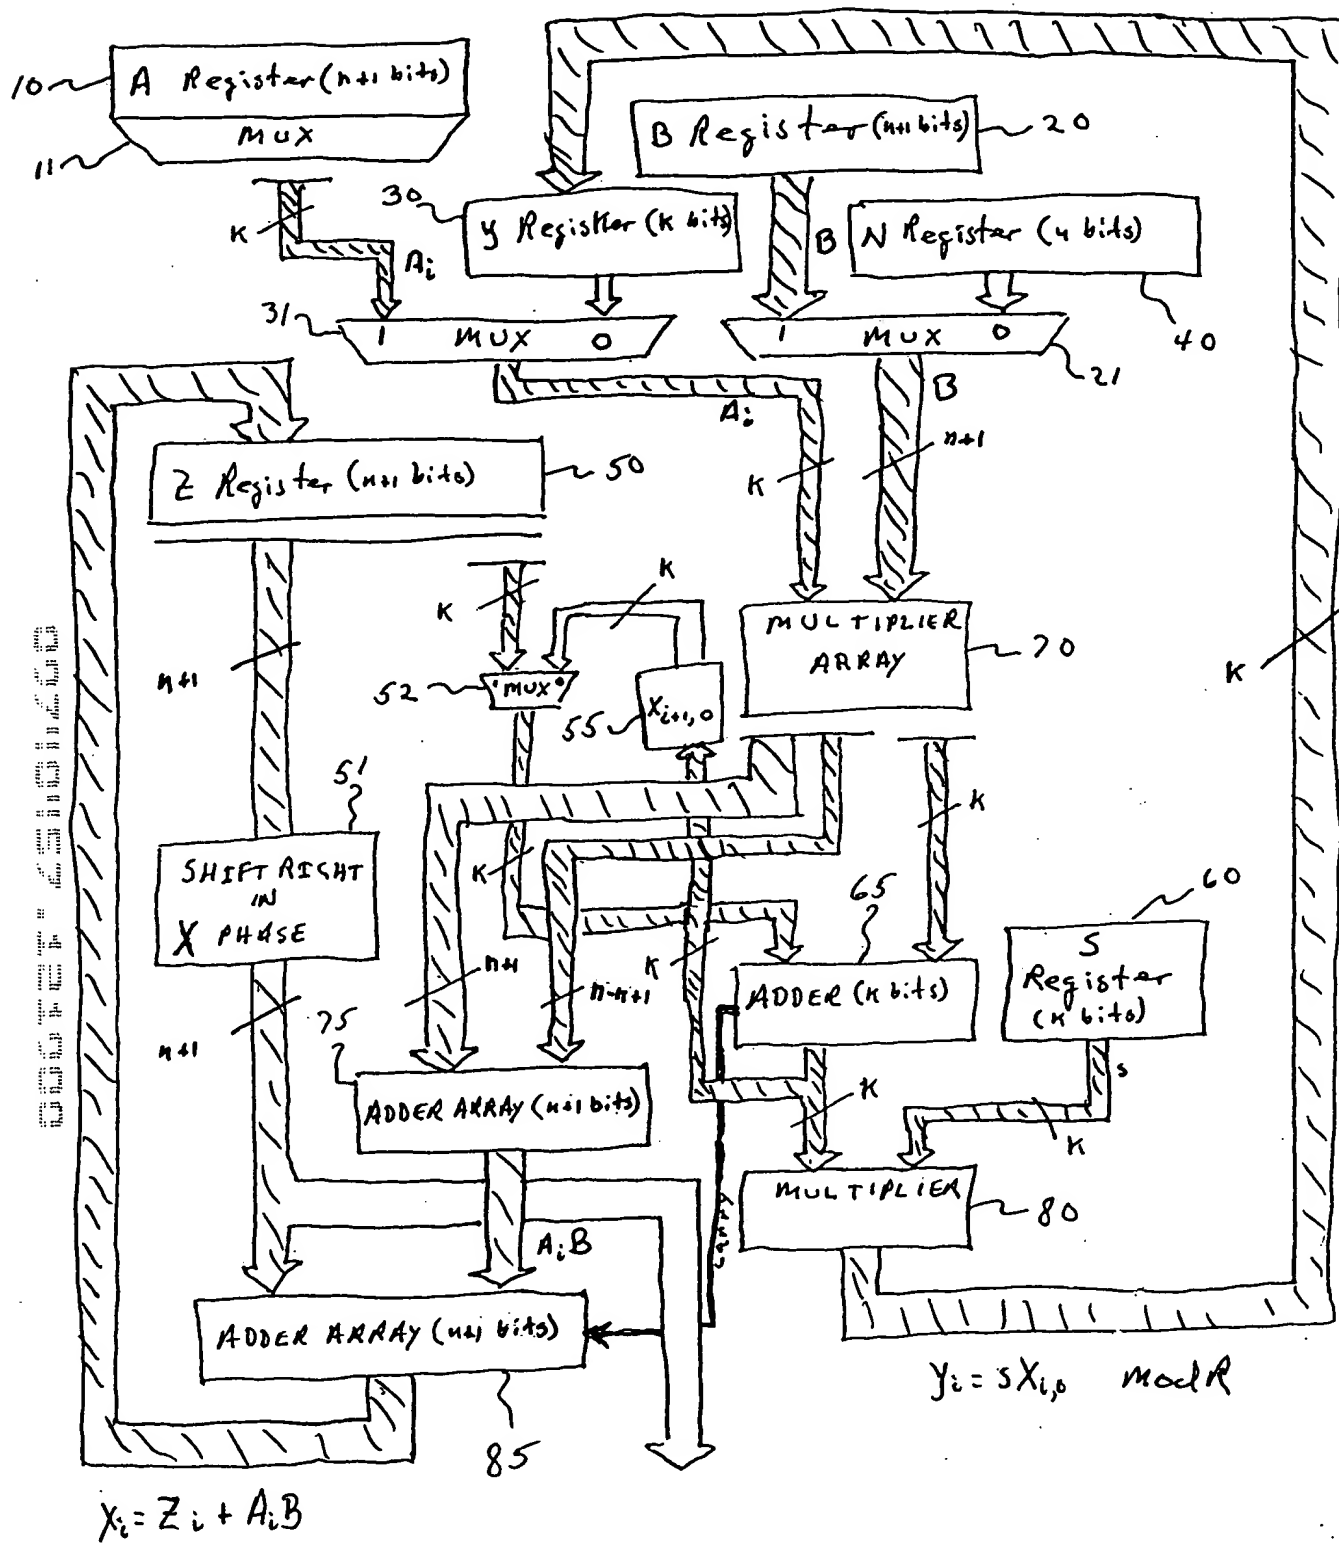 10
A Register (n+1 bits)
MUX
11
K
Ai
B Register (n+1 bits)
20
30
y Register (k bits)
B
N Register (n bits)
40
31
1 MUX 0
1 MUX 0
21
Ai
B
K
n+1
Z Register (n+1 bits)
50
K
K
n+1
52
1 MUX 0
55
Xi+1,0
MULTIPLIER
ARRAY
70
K
51
SHIFT RIGHT
IN
X PHASE
K
K
65
60
n+1
n-k+1
K
ADDER (k bits)
S
Register
(k bits)
n+1
75
ADDER ARRAY (n+1 bits)
K
s
K
MULTIPLIER
80
CARRY
AiB
ADDER ARRAY (n+1 bits)
85
yi = sXi,0 mod R
Xi = Zi + AiB